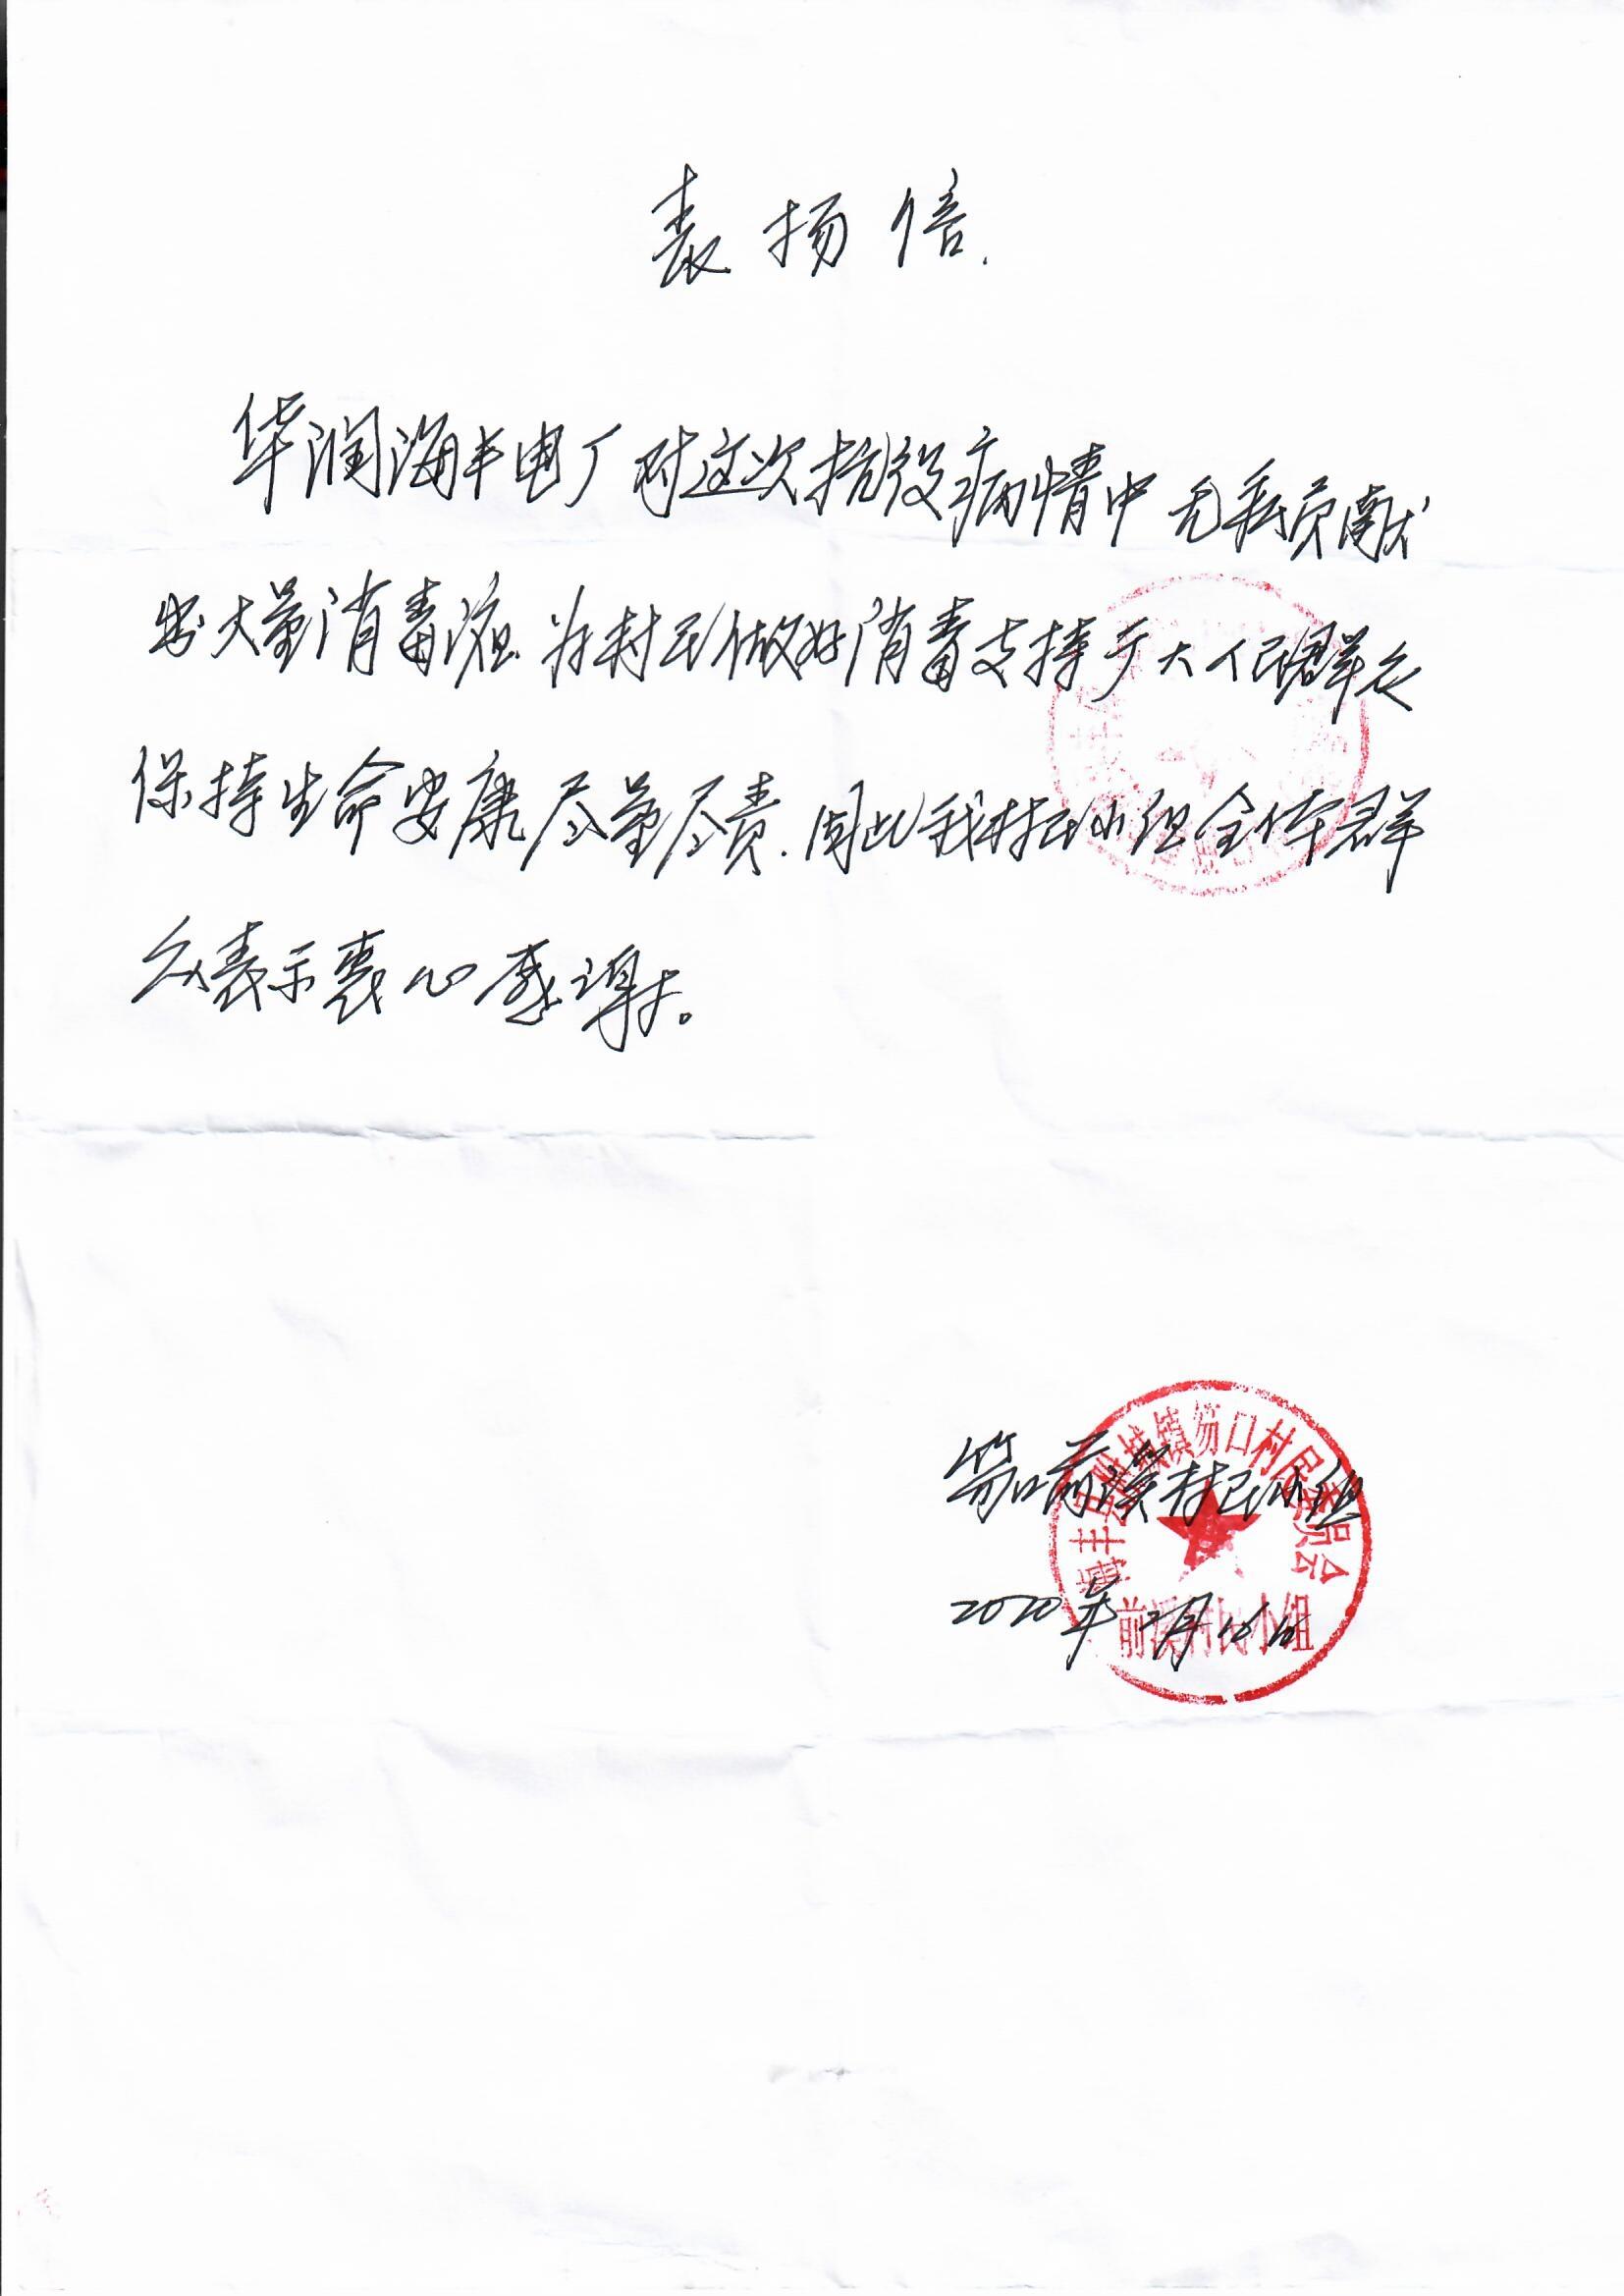 表扬信.
华润海丰电厂对这次抗役病情中无私贡献
出大量消毒液.为村民做好消毒支持广大人民群众
保持生命安康尽量尽责.因此我村民小组全体群
众表示衷心感谢。
笏口前溪村民小组
海丰县 城镇笏口村民委员会
2020年2月18日
前溪村民小组